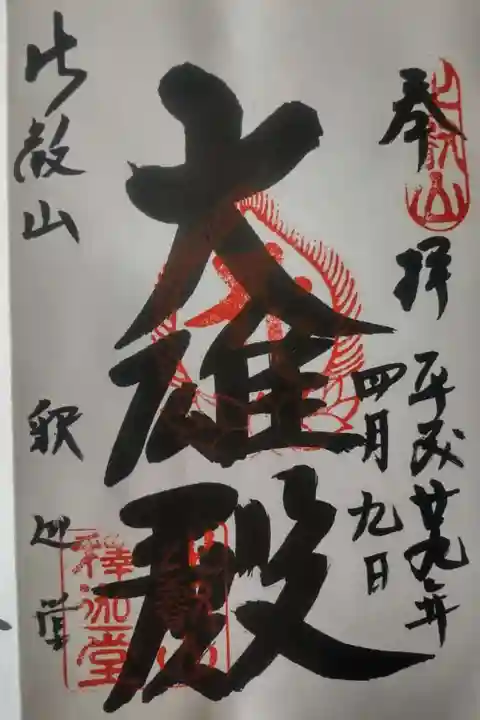 奉拝
比叡山
平成廿九年
四月九日
大雄殿
比叡山
釈迦堂
比叡山
釋迦堂